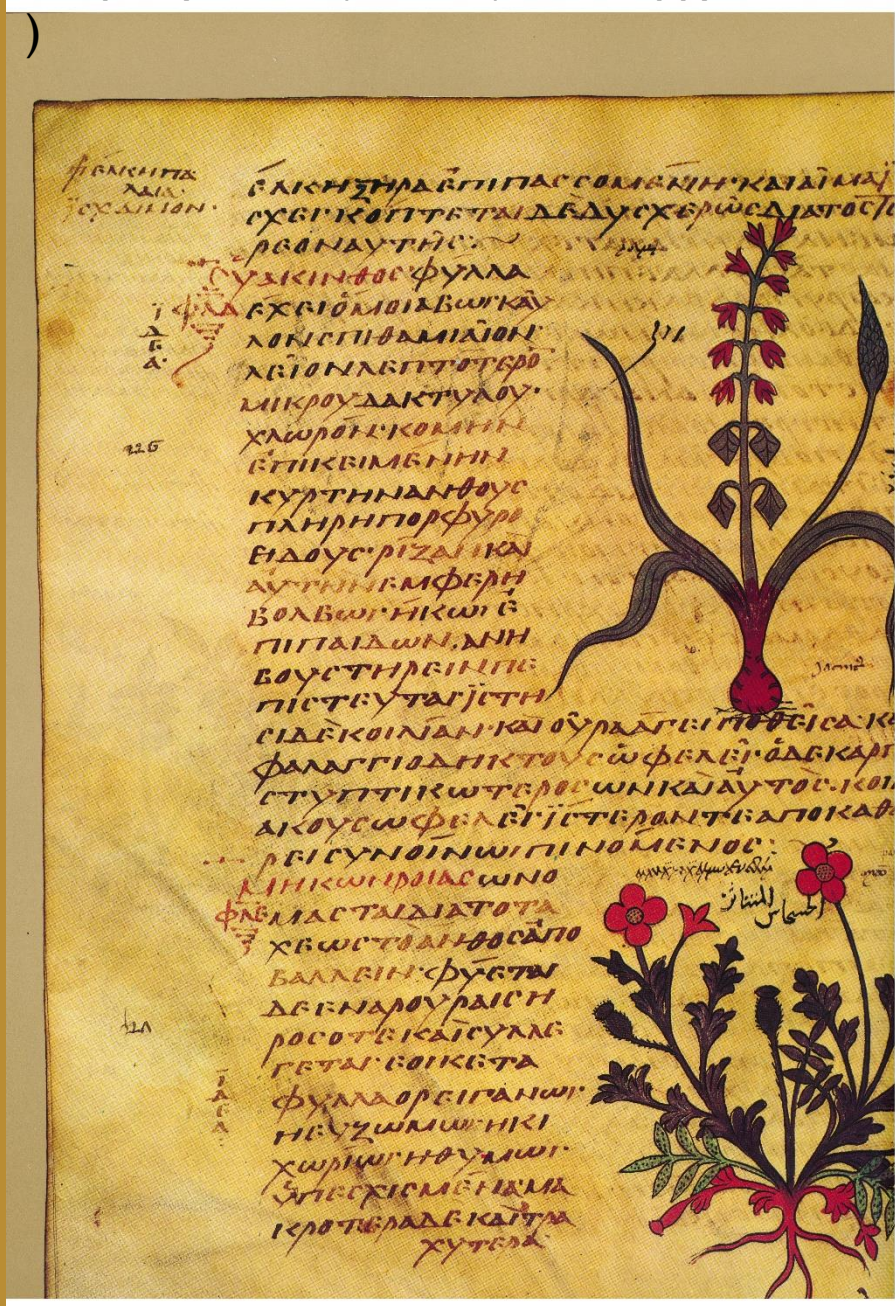 )
ΕΛΚΗΞΗΡΑΕΠΙΠΑΣΣΟΜΕΝΗ·ΚΑΙΑΙΜΑ
ΣΧΕΙ·ΚΟΠΤΕΤΑΙΔΕΔΥΣΧΕΡΩΣΔΙΑΤΟ
ΡΕΟΝΑΥΤΗΣ:
ΥΑΚΙΝΘΟΣ·ΦΥΛΛΑ
ΕΧΕΙΟΜΟΙΑΒΩΙ·ΚΑΥ
ΛΟΝΣΠΙΘΑΜΙΑΙΟΝ·
ΛΕΙΟΝΛΕΠΤΟΤΕΡΟ
ΜΙΚΡΟΥΔΑΚΤΥΛΟΥ·
ΧΛΩΡΟΝ·ΚΟΜΗΝ
ΕΠΙΚΕΙΜΕΝΗΝ
ΚΥΡΤΗΝΑΝΘΟΥΣ
ΠΛΗΡΗΠΟΡΦΥΡΟ
ΕΙΔΟΥΣ·ΡΙΖΑΝΚΑΙ
ΑΥΤΗΝΕΜΦΕΡΗ
ΒΟΛΒΩΙ·ΗΚΩΙΕ
ΠΙΠΑΙΔΩΝ.ΑΝΗ
ΒΟΥΣΤΗΡΕΙΝΠΕ
ΠΙΣΤΕΥΤΑΙ·ΙΣΤΗ
ΣΙΔΕΚΟΙΛΙΑΝ·ΚΑΙΟΥΡΑΑΓΕΙΠΟΘΕΙΣΑ·Κ
ΦΑΛΑΓΓΙΟΔΗΚΤΟΥΣΩΦΕΛΕΙ·ΟΔΕΚΑΡ
ΣΤΥΠΤΙΚΩΤΕΡΟΣΩΝΚΑΙΑΥΤΟΣ·ΚΟΙ
ΑΚΟΥΣΩΦΕΛΕΙ·ΙΣΤΕΡΟΝΤΕΑΠΟΚΑΘ
ΡΕΙΣΥΝΟΙΝΩΙΠΙΝΟΜΕΝΟΣ:
ΜΗΚΩΝΡΟΙΑΣΩΝΟ
ΜΑΣΤΑΙΔΙΑΤΟΤΑ
ΧΕΩΣΤΟΑΝΘΟΣΑΠΟ
ΒΑΛΛΕΙΝ·ΦΥΕΤΑΙ
ΔΕΕΝΑΡΟΥΡΑΙΣΗ
ΡΟΣΟΤΕΚΑΙΣΥΛΛΕ
ΓΕΤΑΙ·ΕΟΙΚΕΤΑ
ΦΥΛΛΑΟΡΕΙΓΑΝΩΙ·
ΗΕΥΖΩΜΩΙΗΚΙ
ΧΩΡΙΩΙ·ΗΘΥΜΩΙ·
ΕΠΕΣΧΙΣΜΕΝΑΜΑ
ΚΡΟΤΕΡΑΔΕΚΑΙΤΡΑ
ΧΥΤΕΡΑ·